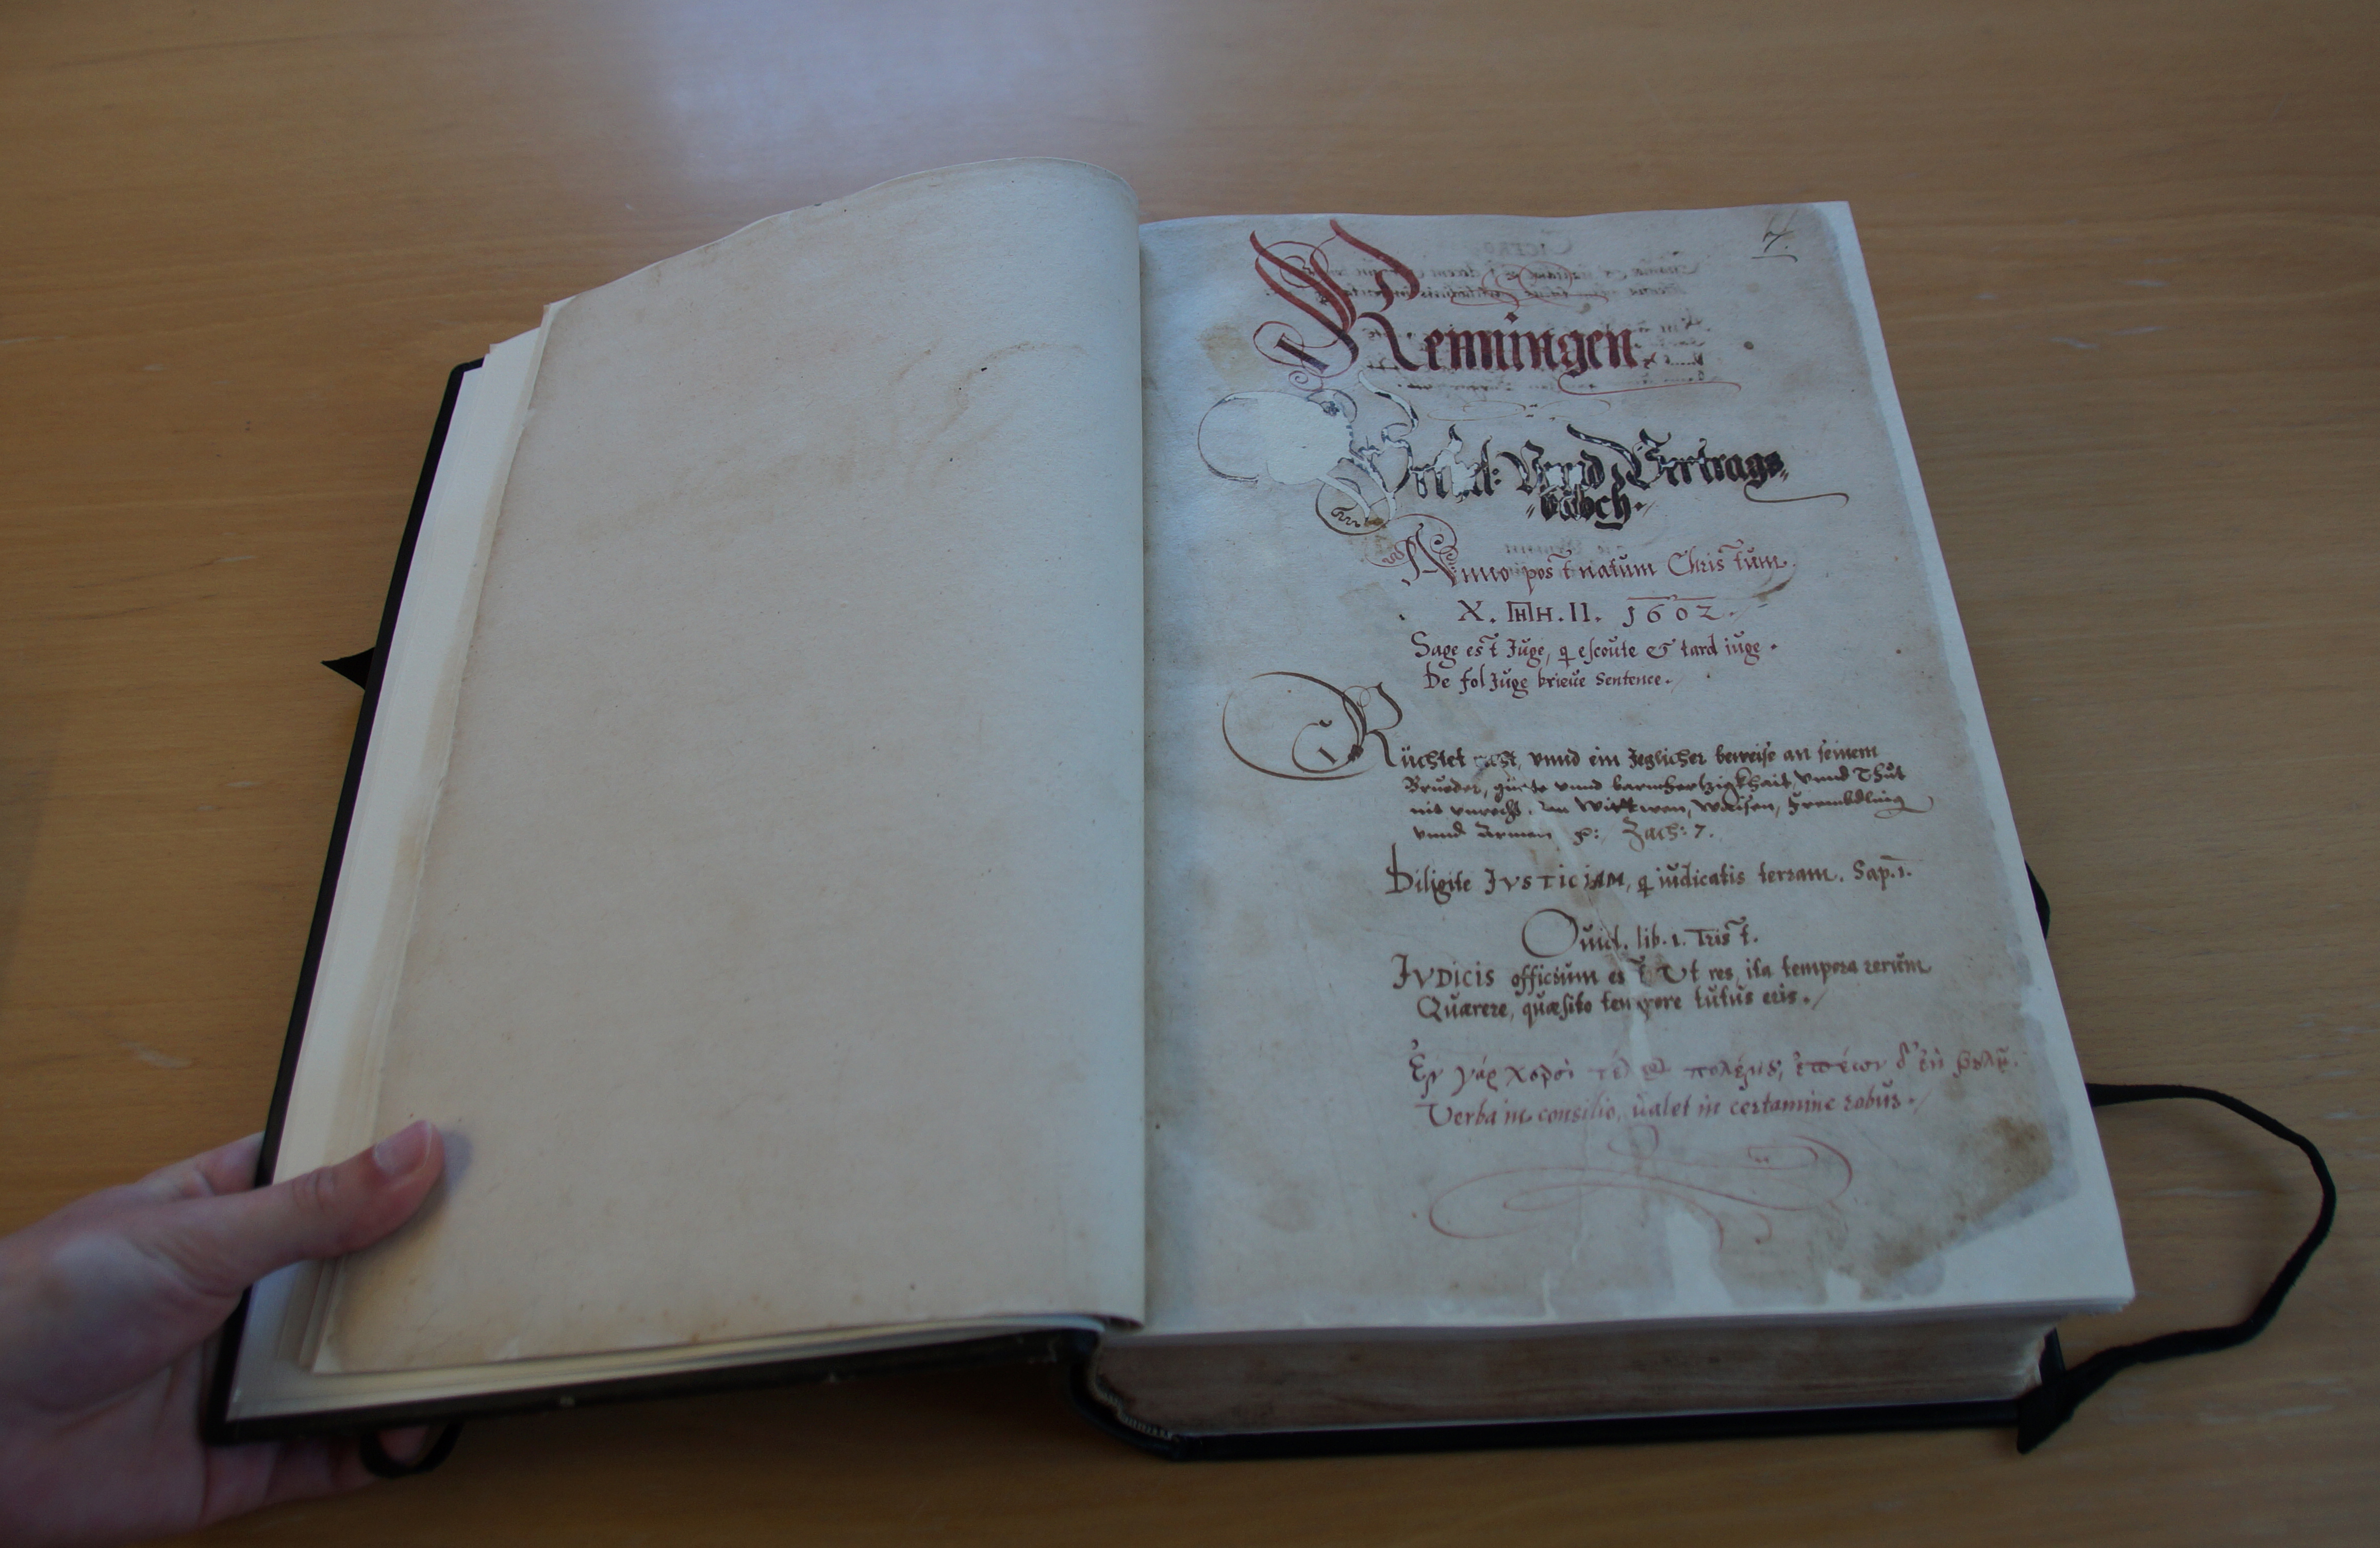 4.
Renningen.
Urtel: Vnnd Vertrags=
=buoch.
Anno post natum Christum
X. HH.II. 1602.
Sage est Juge, q escoute & tard iuge.
De fol Juge brieue sentence.
Rüchtet recht, vnnd ein Jeglicher beweise an seinem
Brueder, güete vnnd barmhertzigkhait, vnnd Thut
nit vnrecht, den Wittwen, Waisen, Frembdling
vnnd Armen p: Zach: 7.
Diligite JVSTICIAM, q iudicatis terram. Sap. 1.
Ouid. lib. 1. Trist.
JVDICIS officium est Ut res, ita tempora rerum
Quærere, quæsito tempore tutus eris.
Ἐν γάρ χερσὶ τέλος πολέμου, ἐπέων δ' ἐνὶ βουλῇ.
Verba in consilio, ualet in certamine robur.